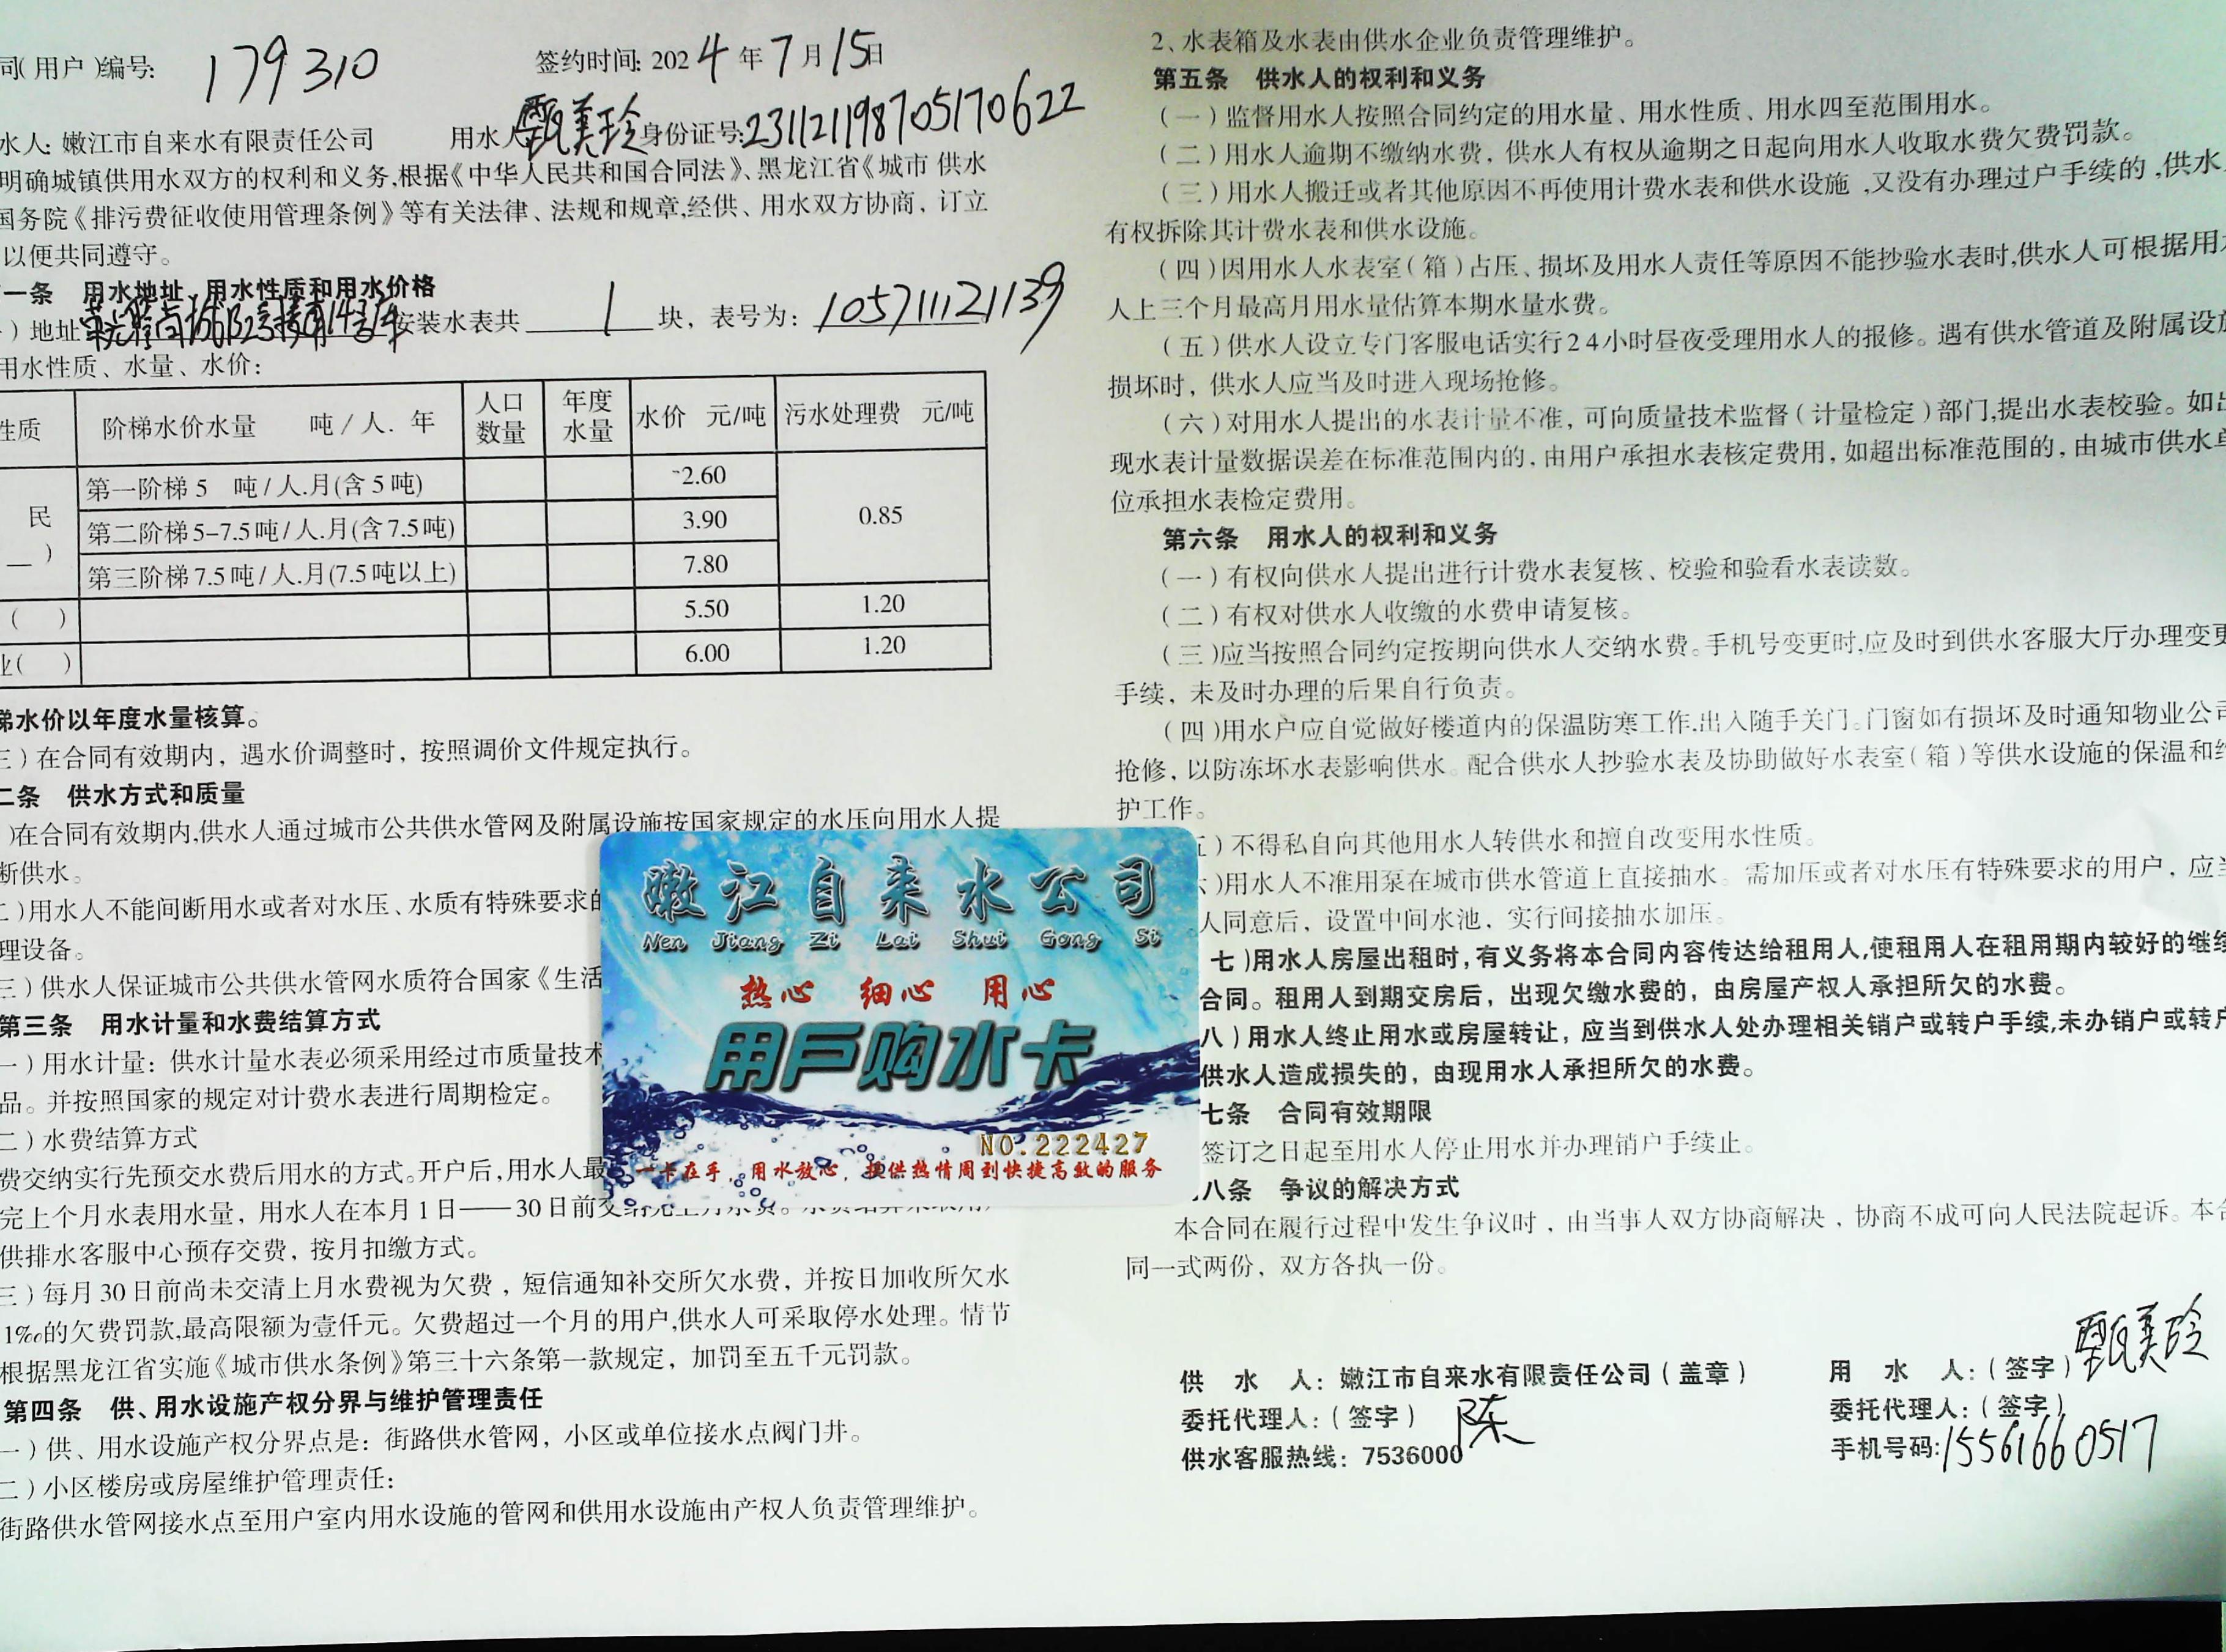 同(用户)编号: 179310 签约时间: 2024年7月15日
水人: 嫩江市自来水有限责任公司 用水人 甄美玲 身份证号: 231121198705170622
明确城镇供用水双方的权利和义务,根据《中华人民共和国合同法》、黑龙江省《城市 供水
国务院《排污费征收使用管理条例》等有关法律、法规和规章,经供、用水双方协商，订立
以便共同遵守。
一条 用水地址、用水性质和用水价格
)地址 安装水表共 1 块，表号为: 105711121139
用水性质、水量、水价:
性质 阶梯水价水量 吨/人.年 人口数量 年度水量 水价 元/吨 污水处理费 元/吨
民 第一阶梯 5 吨/人.月(含5吨) 2.60 0.85
第二阶梯5-7.5吨/人.月(含7.5吨) 3.90
第三阶梯7.5吨/人.月(7.5吨以上) 7.80
( ) 5.50 1.20
业( ) 6.00 1.20
梯水价以年度水量核算。
三)在合同有效期内，遇水价调整时，按照调价文件规定执行。
二条 供水方式和质量
)在合同有效期内,供水人通过城市公共供水管网及附属设施按国家规定的水压向用水人提
断供水。
二)用水人不能间断用水或者对水压、水质有特殊要求的
理设备。
三)供水人保证城市公共供水管网水质符合国家《生活
第三条 用水计量和水费结算方式
一)用水计量: 供水计量水表必须采用经过市质量技术
品。并按照国家的规定对计费水表进行周期检定。
二)水费结算方式
费交纳实行先预交水费后用水的方式。开户后,用水人最
完上个月水表用水量，用水人在本月1日——30日前交
供排水客服中心预存交费，按月扣缴方式。
三)每月30日前尚未交清上月水费视为欠费，短信通知补交所欠水费，并按日加收所欠水
1‰的欠费罚款,最高限额为壹仟元。欠费超过一个月的用户,供水人可采取停水处理。情节
根据黑龙江省实施《城市供水条例》第三十六条第一款规定，加罚至五千元罚款。
第四条 供、用水设施产权分界与维护管理责任
一)供、用水设施产权分界点是: 街路供水管网，小区或单位接水点阀门井。
二)小区楼房或房屋维护管理责任:
街路供水管网接水点至用户室内用水设施的管网和供用水设施由产权人负责管理维护。
嫩江自来水公司
Nen Jiang Zi Lai Shui Gong Si
热心 细心 用心
用户购水卡
NO.222427
一卡在手，用水放心，提供热情周到快捷高效的服务
2、水表箱及水表由供水企业负责管理维护。
第五条 供水人的权利和义务
(一)监督用水人按照合同约定的用水量、用水性质、用水四至范围用水。
(二)用水人逾期不缴纳水费，供水人有权从逾期之日起向用水人收取水费欠费罚款。
(三)用水人搬迁或者其他原因不再使用计费水表和供水设施,又没有办理过户手续的,供水
有权拆除其计费水表和供水设施。
(四)因用水人水表室(箱)占压、损坏及用水人责任等原因不能抄验水表时,供水人可根据用
人上三个月最高月用水量估算本期水量水费。
(五)供水人设立专门客服电话实行24小时昼夜受理用水人的报修。遇有供水管道及附属设施
损坏时，供水人应当及时进入现场抢修。
(六)对用水人提出的水表计量不准，可向质量技术监督(计量检定)部门,提出水表校验。如出
现水表计量数据误差在标准范围内的，由用户承担水表核定费用，如超出标准范围的，由城市供水单
位承担水表检定费用。
第六条 用水人的权利和义务
(一)有权向供水人提出进行计费水表复核、校验和验看水表读数。
(二)有权对供水人收缴的水费申请复核。
(三)应当按照合同约定按期向供水人交纳水费。手机号变更时,应及时到供水客服大厅办理变更
手续，未及时办理的后果自行负责。
(四)用水户应自觉做好楼道内的保温防寒工作.出入随手关门。门窗如有损坏及时通知物业公司
抢修，以防冻坏水表影响供水。配合供水人抄验水表及协助做好水表室(箱)等供水设施的保温和维
护工作。
五)不得私自向其他用水人转供水和擅自改变用水性质。
)用水人不准用泵在城市供水管道上直接抽水。需加压或者对水压有特殊要求的用户，应当
人同意后，设置中间水池，实行间接抽水加压。
七)用水人房屋出租时,有义务将本合同内容传达给租用人,使租用人在租用期内较好的继续
合同。租用人到期交房后，出现欠缴水费的，由房屋产权人承担所欠的水费。
八)用水人终止用水或房屋转让，应当到供水人处办理相关销户或转户手续,未办销户或转户
供水人造成损失的，由现用水人承担所欠的水费。
七条 合同有效期限
签订之日起至用水人停止用水并办理销户手续止。
八条 争议的解决方式
本合同在履行过程中发生争议时，由当事人双方协商解决，协商不成可向人民法院起诉。本合
同一式两份，双方各执一份。
供 水 人: 嫩江市自来水有限责任公司(盖章)
委托代理人:(签字) 陈
供水客服热线: 7536000
用 水 人:(签字) 甄美玲
委托代理人:(签字)
手机号码: 15561660517